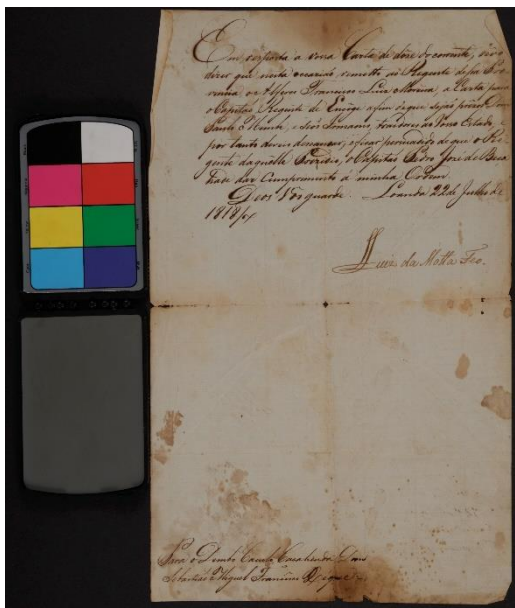 Em resposta a vossa Carta de doze do corrente, vou
dizer que nesta occazião remetto ao Regente dessa Pro
vincia o Alferes Francisco Luiz Moreira, a Carta para
o Capitão Regente de Encoge afim de que sejão prezos
Santo e seos Irmaons, traidores ao Vosso Estado,
por tanto deveis descançar, e ficar persuadido de que o Re
gente daquelle Prezidio, o Capitão Pedro José de
hade dar Cumprimento á minha Ordem.
Deos Vos guarde. Loanda 22 de Julho de
1818//
Luiz da Motta Feo.
Para o Dembo Caculo Cacahenda Dom
Sebastião Miguel Francisco